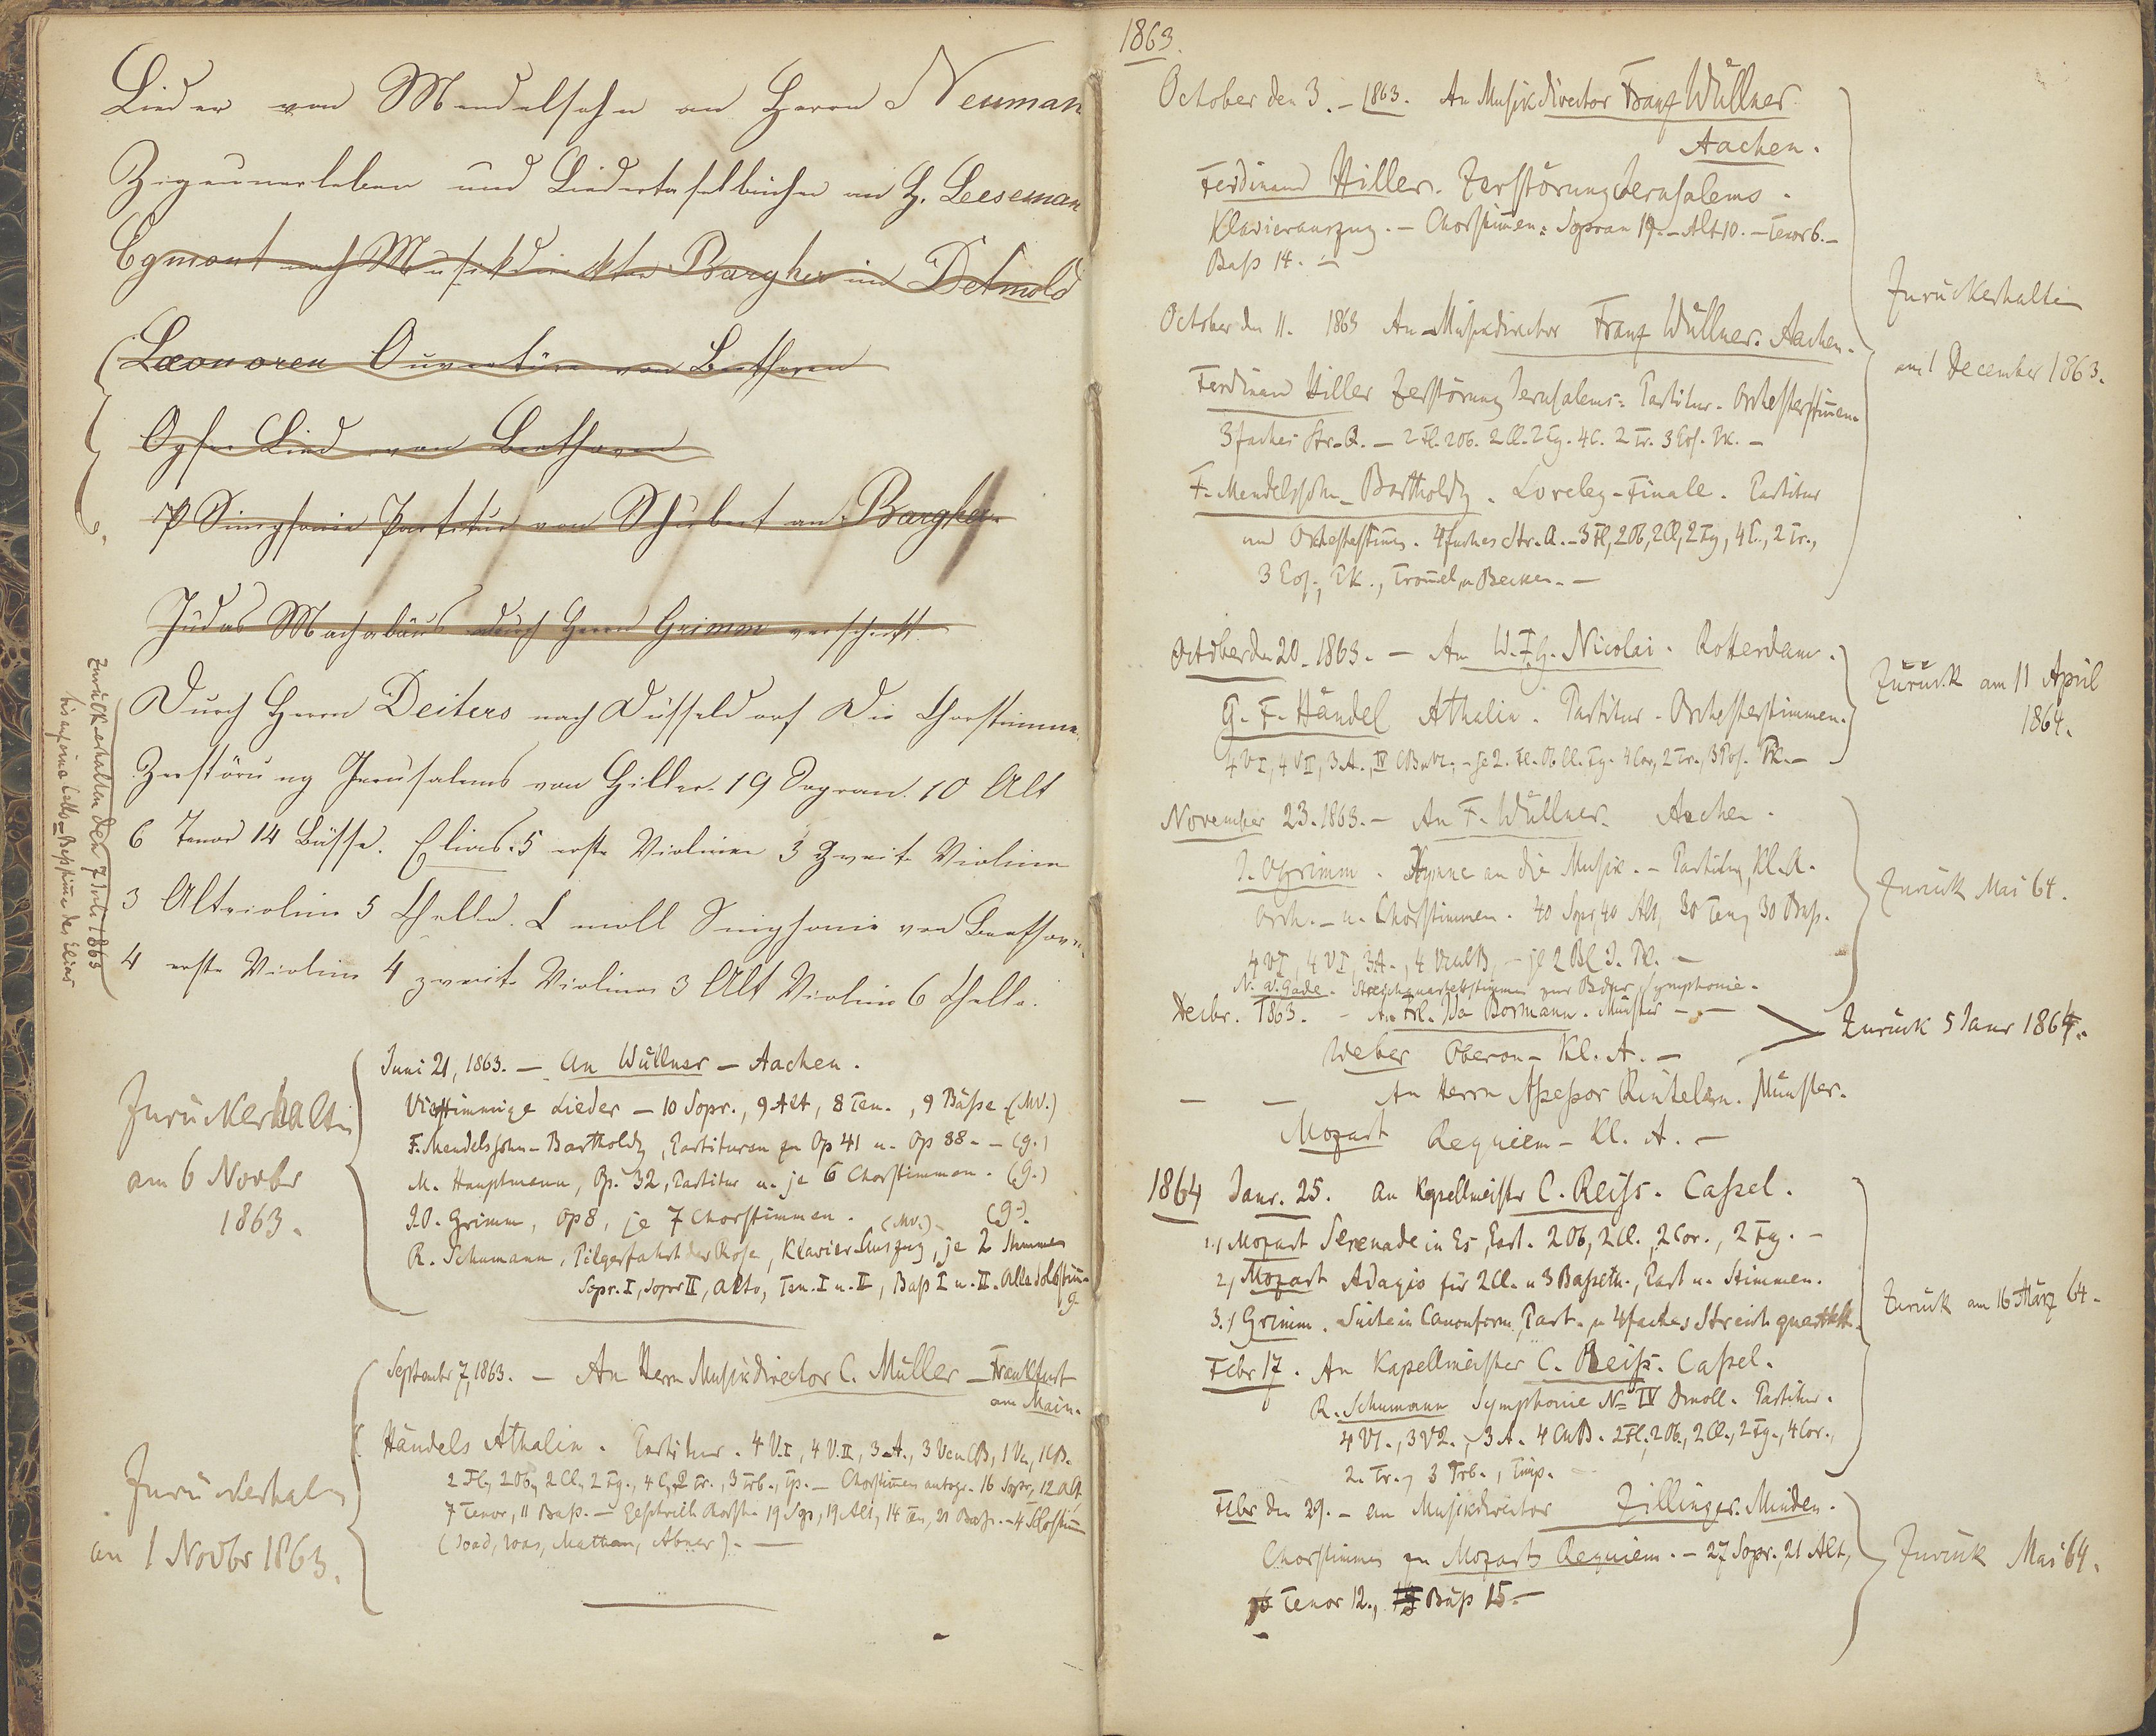 Lieder von Mendelsohn an Herrn Neuman
Zigeunerleben und Liedertafelbücher an H. Leeseman
Egmont nach Musikdirektor Bargheer in Detmold
Leonoren Ouvertüre von Beethoven
Opfer Lied von Beethoven
Simphonie Partitur von Schubert an Bargheer
Judas Machabäus durch Herrn Grimm verschickt.
Durch Herrn Deiters nach Düsseldorf Die Chorstimmen
Zerstörung Jerusalems von Hiller. 19 Sopran. 10 Alt
6 Tenor 14 Bässe. Elias. 5 erste Violinen 3 Zweite Violine
3 Altviolin 5 Chello. C moll Simphonie von Beethoven
4 erste Violin 4 zweite Violinen 3 Alt Violin 6 Chello.
Zurückerhalten den 7 Juli 1863
bis auf eine Cello Baßstime des Elias
Juni 21, 1863. — An Wüllner — Aachen.
Vierstimmige Lieder — 10 Sopr., 9 Alt, 8 Ten., 9 Bässe. (MV.)
F. Mendelssohn-Bartholdy, Partituren zu Op 41 u. Op 88. — (G.)
M. Hauptmann, Op. 32, Partitur u. je 6 Chorstimmen. (G.)
J.O. Grimm, Op 8, je 7 Chorstimmen. (G.)
(MV.)
R. Schumann, Pilgerfahrt der Rose, Klavier-Auszug, je 2 Stimmen
Sopr. I, Sopr II, Alto, Ten. I u. II, Baß I u. II. Alle Solostim̄.
G.
Zurückerhalten
am 6 Novbr
1863.
September 7, 1863. — An Herrn Musikdirector C. Müller — Frankfurt
am Main.
Händels Athalia. Partitur. 4 V.I, 4 V.II, 3 A., 3 Vcu CB, 1 Vc, 1 CB.
2 Fl., 2 Ob., 2 Cl., 2 Fg., 4 C., 2 Tr., 3 Trb., Tp. — Chorstimmen autogr. 16 Sopr., 12 Alt
7 Tenor, 11 Baß. — Geschrieb. Chorst. 19 Sop, 19 Alt, 14 Ten, 21 Baß. — 4 Solostim̄
(Joad, Joas, Mathan, Abner). —
Zurückerhalten
am 1 Novbr 1863.
1863.
October den 3. — 1863. An Musikdirector Franz Wüllner
Aachen.
Ferdinand Hiller. Zerstörung Jerusalems.
Klavierauszug. — Chorstim̄en: Sopran 19. — Alt 10. — Tenor 6. —
Baß 14. —
October den 11. 1863 An Musikdirector Franz Wüllner. Aachen.
Ferdinand Hiller Zerstörung Jerusalems: Partitur. Orchesterstim̄en.
3faches Str. Q. — 2 Fl. 2 Ob. 2 Cl. 2 Fg. 4 C. 2 Tr. 3 Pos. Pk. —
F. Mendelssohn-Bartholdy. Loreley-Finale. Partitur
und Orchesterstim̄. 4faches Str. Q. — 3 Fl, 2 Ob, 2 Cl, 2 Fg, 4 C., 2 Tr.,
3 Pos., Pk., Trom̄el, u Becken. —
Zurückerhalten
am 1 December 1863.
October den 20. 1863. — An W.F.G. Nicolai. Rotterdam.
G. F. Händel Athalia. Partitur. Orchesterstimmen.
4 V I, 4 V II, 3 A., IV CB u Vc, — je 2. Fl. Ob. Cl. Fg. 4 Cor, 2 Tr., 3 Pos. Pk. —
Zurück am 11 April
1864.
November 23. 1863. — An F. Wüllner. Aachen.
J. O Grimm. Hymne an die Musik. — Partitur, Kl. A.
Orch. — u. Chorstimmen. 40 Sopr, 40 Alt, 30 Ten, 30 Baß.
4 V I, 4 V I, 3 A., 4 Vc u CB, — je 2 Bl J. Pk. —
N. W. Gade. Streichquartettstimmen zur Bdur Symphonie.
Zurück Mai 64.
Decbr. 1863. — An Frl. Ida Bormann. Münster — —
Weber Oberon — Kl. A. —
Zurück 5 Janr 1864.
— — An Herrn Assessor Rintelen. Münster.
Mozart Requiem — Kl. A. —
1864 Janr. 25. An Kapellmeister C. Reiss. Cassel.
1.) Mozart Serenade in Es, Part. 2 Ob, 2 Cl., 2 Cor., 2 Fg. —
2.) Mozart Adagio für 2 Cl. u 3 Basseth., Part u. Stimmen.
3.) Grimm. Suite in Canonform, Part. u 4faches Streichquartett.
Febr 17. An Kapellmeister C. Reiss. Cassel.
R. Schumann Symphonie No IV Dmoll. Partitur.
4 V1., 3 V2., 3 A. 4 C u B. 2 Fl., 2 Ob., 2 Cl., 2 Fg., 4 Cor.,
2. Tr., 3 Trb., Timp.
Zurück am 16 März 64.
Febr den 29. — An Musikdirector Zillinger. Minden.
Chorstimmen zu Mozarts Requiem. — 27 Sopr., 21 Alt,
Tenor 12., Baß 15. —
Zurück Mai 64.